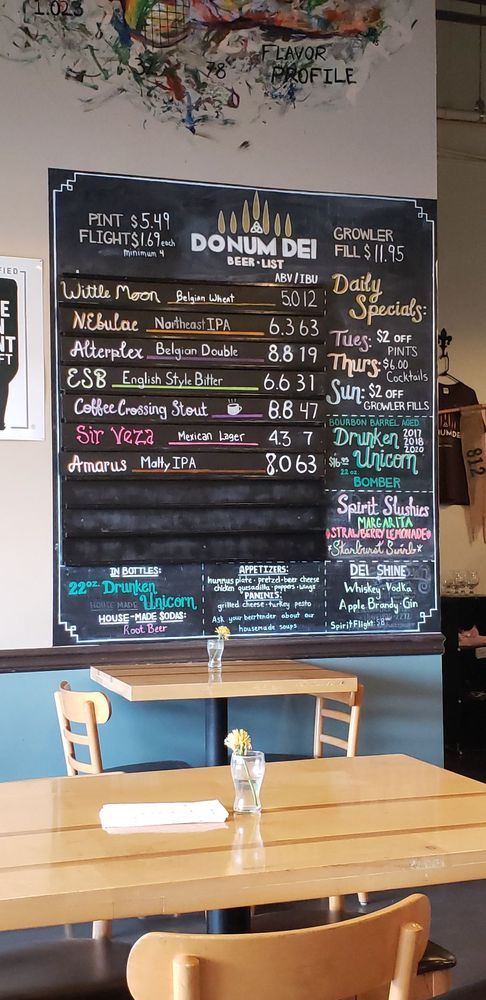 1.023
78
FLAVOR
PROFILE
PINT $5.49
FLIGHT $1.69 each
minimum 4
DONUM DEI
BEER·LIST
GROWLER
FILL $11.95
ABV/IBU
Wittle Moon Belgian Wheat 5.0 12
N.Ebulae Northeast IPA 6.3 63
Alterplex Belgian Double 8.8 19
ESB English Style Bitter 6.6 31
Coffee Crossing Stout 8.8 47
Sir Veza Mexican Lager 4.3 7
Amarus Malty IPA 8.0 63
Daily
Specials:
Tues: $2 OFF
PINTS
Thurs: $6.00
Cocktails
Sun: $2 OFF
GROWLER FILLS
BOURBON BARREL AGED
Drunken 2017
2018
Unicorn 2020
22 oz.
BOMBER
Spirit Slushies
MARGARITA
STRAWBERRY LEMONADE
Starburst Swirl
IN BOTTLES:
22oz. Drunken
Unicorn
HOUSE MADE
HOUSE-MADE SODAS:
Root Beer
APPETIZERS:
hummus plate · pretzel·beer cheese
chicken quesadilla · poppers · wings
PANINIS:
grilled cheese · turkey pesto
Ask your beertender about our
housemade soups
DEL SHINE
Whiskey·Vodka
Apple Brandy·Gin
Spirit Flight: $8
812